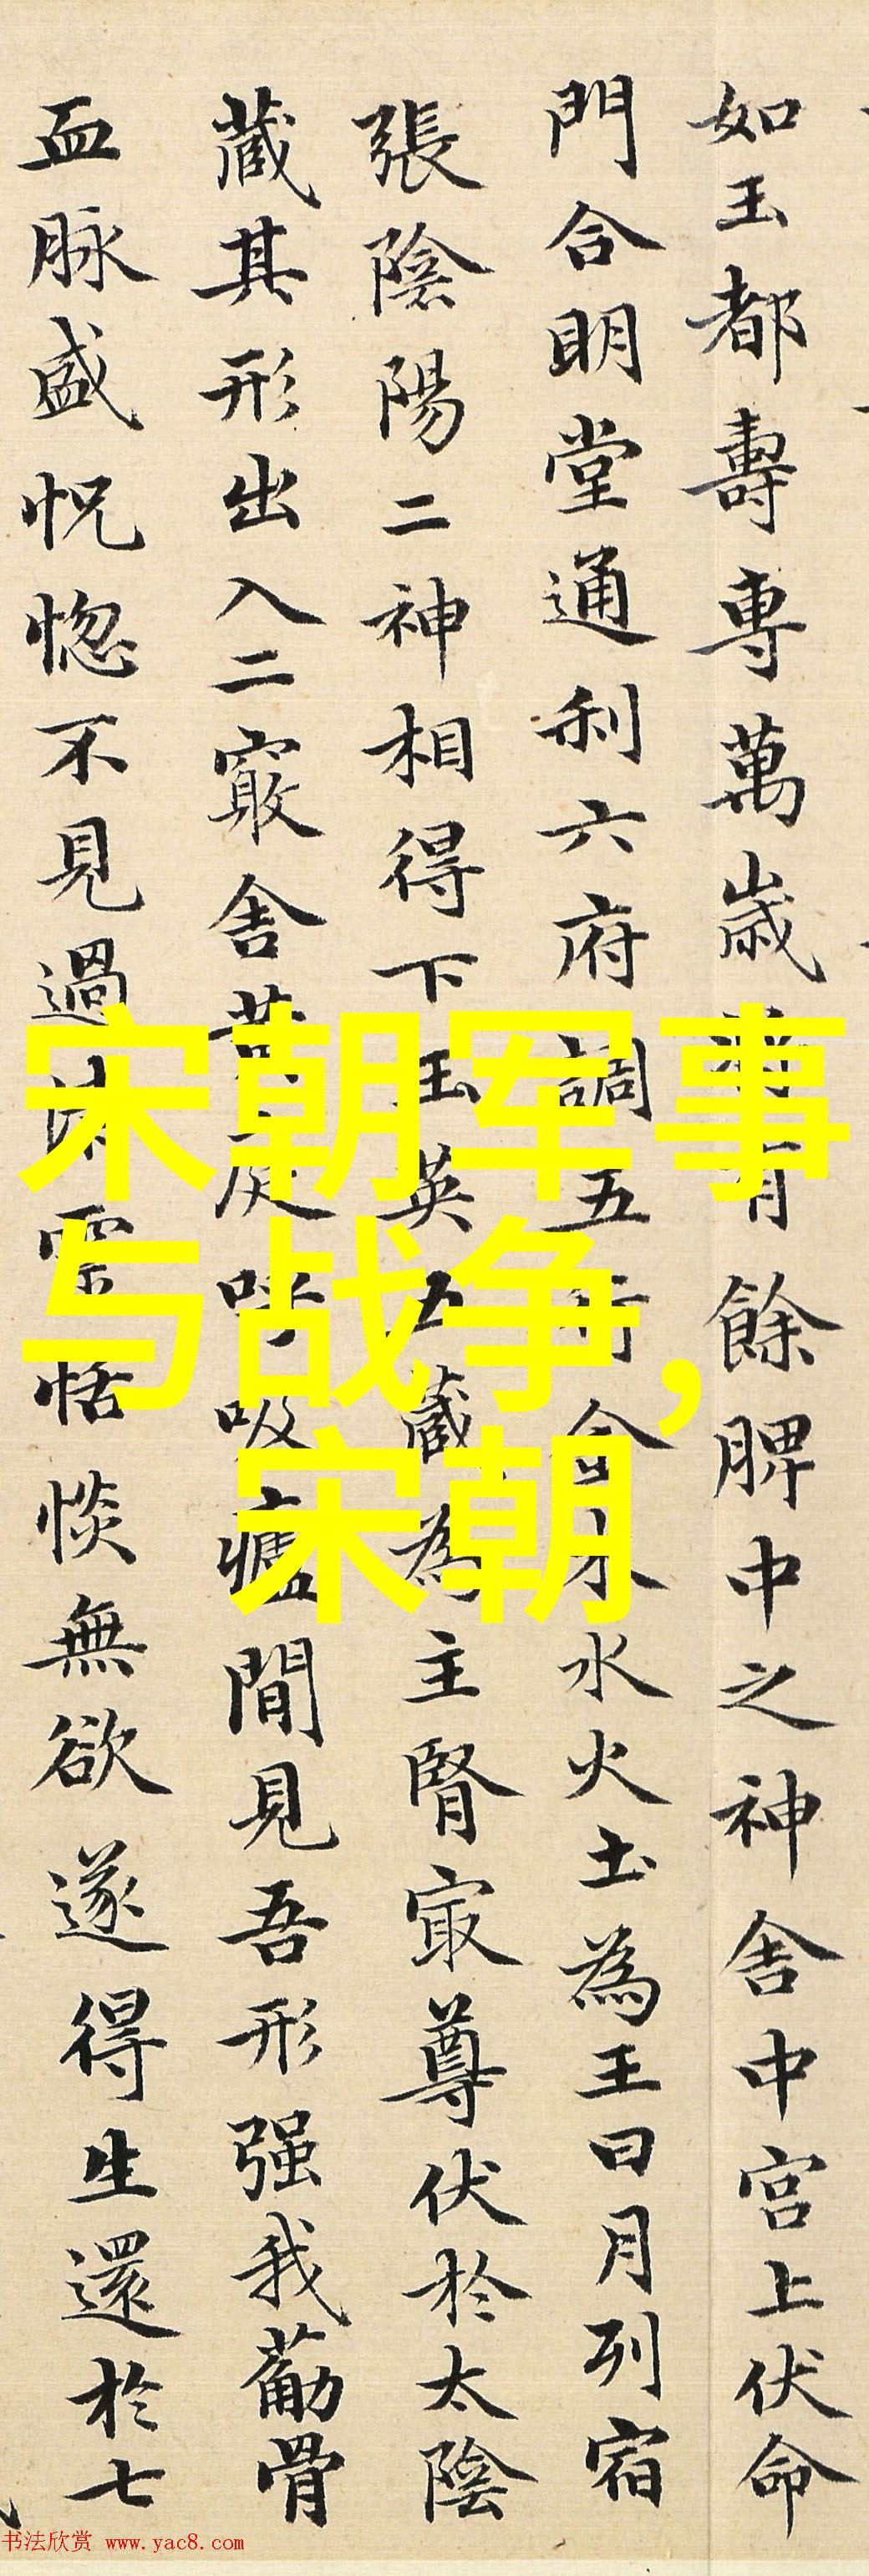 如玉都壽專萬歲將有餘脾中之神舍中宮上伏命
門合明堂通利六府調五行金木水火土為王日月列宿
張陰陽二神相得下玉英五藏為主腎寂尊伏於太陰
藏其形出入二竅舍黃庭呼吸廬間見吾形强我葋骨
血脉盛怳惚不見過清靈恬惔無欲遂得生還於七
宋朝军事
与战争,
宋朝
书法欣赏 www.yac8.com